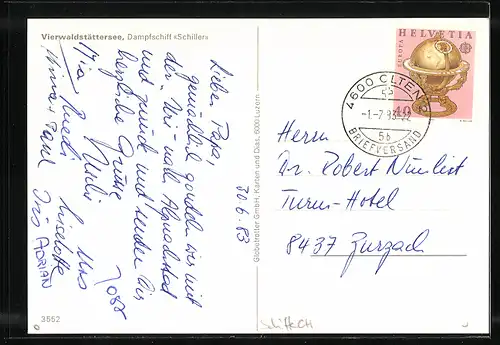 Vierwaldstättersee, Dampfschiff «Schiller»
30.6.83
Lieber Papa,
gemütlich gondeln wir mit
der Uri nach Alpnachstad
und zurück und senden Dir
herzliche Grüsse
Pia Ruedi Ueli
Urs Liselotte
Iris ADRIAN
3552
Globetrotter GmbH, Karten und Dias, 6000 Luzern
HELVETIA
EUROPA
CEPT
40
4600 OLTEN 1
-1-7.83-22
5b
BRIEFVERSAND
Herrn
Dr. Robert Nünlist
Turm-Hotel
8437 Zurzach
Schiffe CH